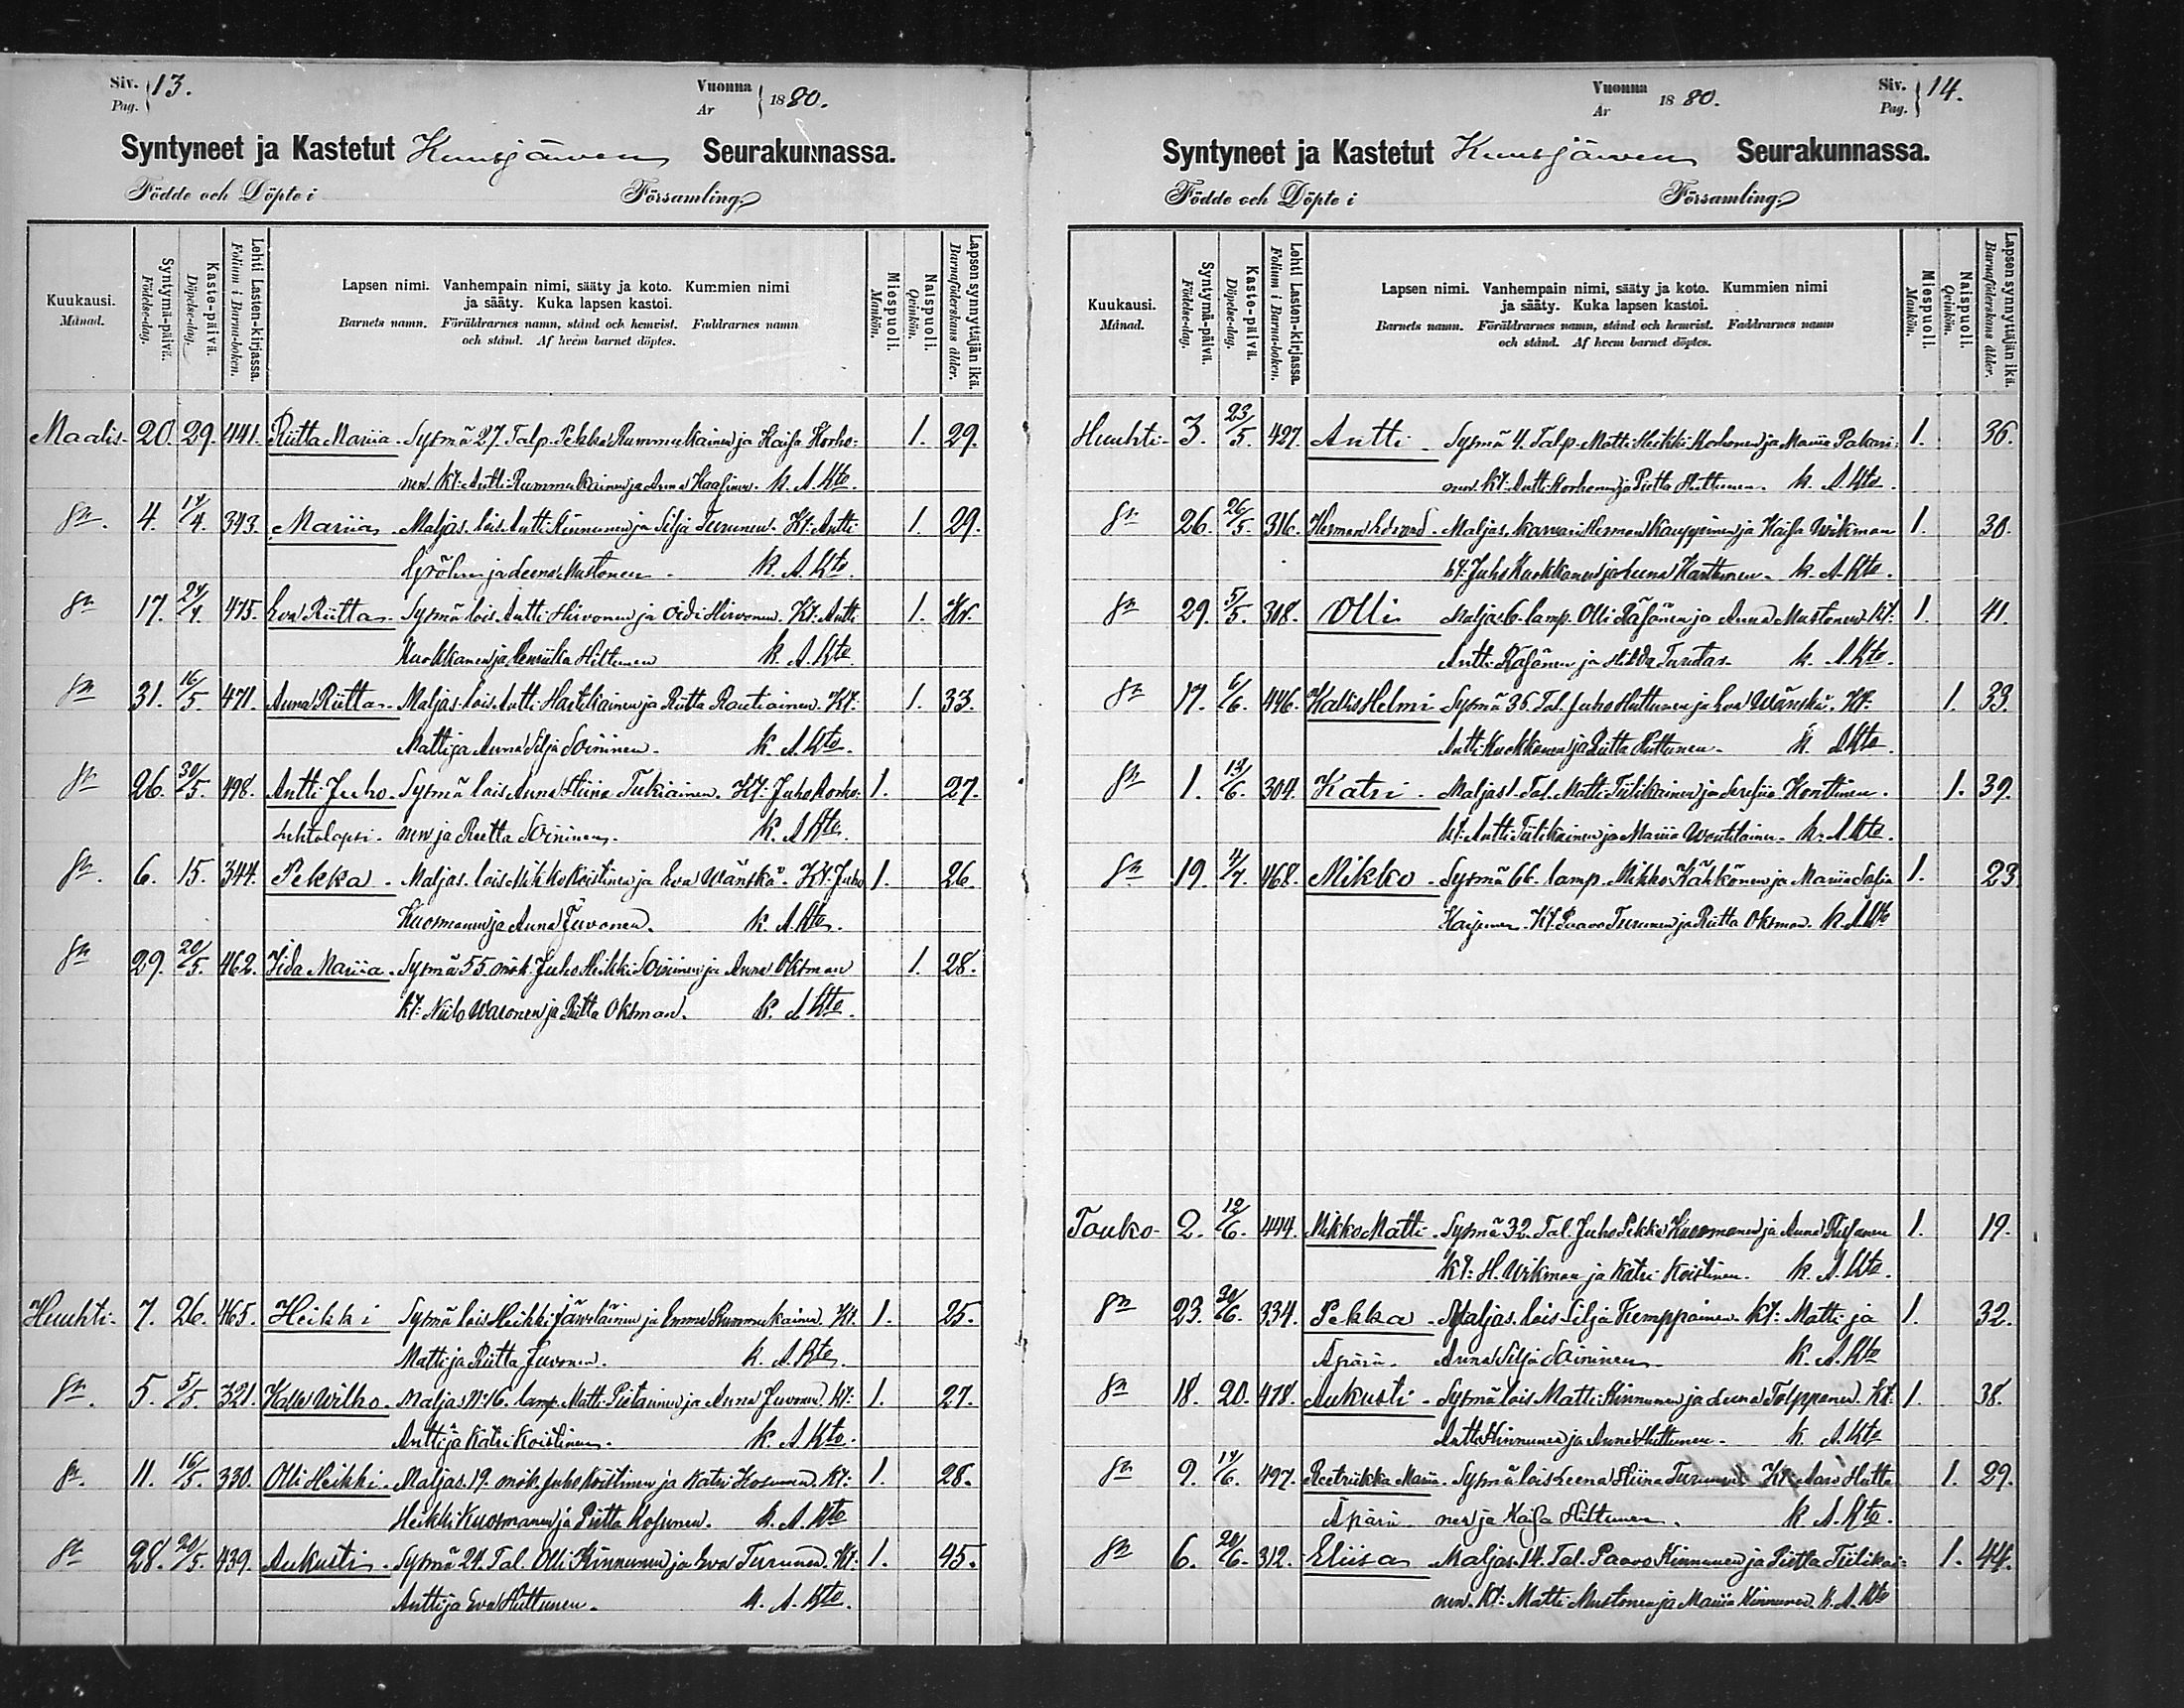 Siv. Pag. 13.
Vuonna År 1880.
Syntyneet ja Kastetut Kuusjärven Seurakunnassa.
Födde och Döpte i Församling.
Kuukausi. Månad.
Syntymä-päivä. Födelse-dag.
Kaste-päivä. Döpelse-dag.
Lehti Lasten-kirjassa. Folium i Barna-boken.
Lapsen nimi. Vanhempain nimi, sääty ja koto. Kummien nimi
ja sääty. Kuka lapsen kastoi.
Barnets namn. Föräldrarnes namn, stånd och hemvist. Faddrarnes namn
och stånd. Af hvem barnet döptes.
Miespuoli. Mankön.
Naispuoli. Qvinkön.
Lapsen synnyttäjän ikä. Barnaföderskans ålder.
Maalis- 20. 29. 441. Riitta Mariia. Sysmä 27. Talp. Pekka Rummukainen ja Kaisa Korho- 1. 29.
nen. K: Antti Rummukainen ja Anna Haasinen. k. A. Kto.
4. 14/4. 343. Mariia. Maljas. lois Antti Kinnunen ja Silja Turunen. K: Antti 1. 29.
Gröhn ja Leena Mustonen. k. A. Kto.
17. 24/4. 475. Eva Riitta. Sysmä lois Antti Hirvonen ja Hirvonen. K: Antti 1.
Kuokkanen ja Henriika Hiltunen k. A. Kto.
31. 16/5. 471. Anna Riitta. Maljas. lois Antti Hartikainen ja Riitta Rautiainen. K: 1. 33.
Matti ja Anna Silja Soininen. k. A. Kto.
26. 30/5. 498. Antti Juho. Sysmä lois Anna Stiina Tukiainen. K: Juho Korho- 1. 27.
Lehtolapsi. nen ja Reetta Soininen. k. A. Kto.
6. 15. 344. Pekka. Maljas. lois Mikko Koistinen ja Eva Wänskä. K: Juho 1. 26.
Kuosmanen ja Anna Juvonen. k. A. Kto.
29. 20/5. 462. Iida Mariia. Sysmä 55. mök. Juho Heikki Soininen ja Anna Oksman 1. 28.
K: Niilo Waronen ja Riitta Oksman. k. A. Kto.
Huuhti- 7. 26. 465. Heikki Sysmä lois Heikki Järveläinen ja Emma Rummukainen. K: 1. 25.
Matti ja Riitta Juvonen. k. A. Kto.
5. 5/5. 321. Kalle Wilho. Maljas N:16. lamp. Matti Pietarinen ja Anna Juvonen. K: 1. 27.
Antti ja Katri Koistinen. k. A. Kto.
11. 16/5. 330. Olli Heikki. Maljas. 19. mök. Juho Koistinen ja Katri Kosunen K: 1. 28.
Heikki Kuosmanen ja Riitta Kosunen. k. A. Kto
28. 20/5. 439. Aukusti. Sysmä 24. Tal. Olli Kinnunen ja Eva Turunen. K: 1. 45.
Antti ja Eva Huttunen. k. A. Kto.
Vuonna År 1880.
Siv. Pag. 14.
Syntyneet ja Kastetut Kuusjärven Seurakunnassa.
Födde och Döpte i Församling.
Kuukausi. Månad.
Syntymä-päivä. Födelse-dag.
Kaste-päivä. Döpelse-dag.
Lehti Lasten-kirjassa. Folium i Barna-boken.
Lapsen nimi. Vanhempain nimi, sääty ja koto. Kummien nimi
ja sääty. Kuka lapsen kastoi.
Barnets namn. Föräldrarnes namn, stånd och hemvist. Faddrarnes namn
och stånd. Af hvem barnet döptes.
Miespuoli. Mankön.
Naispuoli. Qvinkön.
Lapsen synnyttäjän ikä. Barnaföderskans ålder.
Huuhti- 3. 23/5. 427. Antti. Sysmä 4. Talp. Matti Heikki Korhonen ja Mariia Pakari- 1. 36.
nen K: Antti Korhonen ja Riitta Huttunen. k. A. Kto.
26. 26/5. 316. Herman Edvard. Maljas. karvari Herman Kauppinen ja Kaisa Wikman 1. 30.
K: Juho Kuokkanen ja Leena Karttunen. k. A. Kto.
29. 5/5. 308. Olli Maljas. 6. lamp. Olli Räsänen ja Anna Mustonen K: 1. 41.
Antti Räsänen ja Hilda Turutar. k. A. Kto.
17. 6/6. 446. Kallis Helmi Sysmä 36. Tal. Juho Huttunen ja Eva Wänskä. K: 1. 33.
Antti Kuokkanen ja Riitta Huttunen. k. A. Kto
1. 13/6. 304. Katri. Maljas 1. Tal. Matti Tiilikainen ja Serafiia Konttinen. 1. 39.
K: Antti Tiilikainen ja Mariia Woutilainen. k. A. Kto.
19. 4/7. 468. Mikko. Sysmä 66. lamp. Mikko Kähkönen ja Mariia Sofia 1. 23.
K: Paavo Turunen ja Riitta Oksman. k. A. Kto
Touko- 2. 12/6. 444. Mikko Matti. Sysmä 32. Tal. Juho Pekka Kuosmanen ja Anna 1. 19.
K: H. Wikman ja Katri Koistinen. k. A. Kto.
23. 20/6. 334. Pekka. Maljas. lois Silja Kemppainen. K: Matti ja 1. 32.
Äpärä. Anna Silja Soininen. k. A. Kto
18. 20. 478. Aukusti. Sysmä lois Matti Kinnunen ja Leena Tolppanen. K: 1. 38.
Antti Kinnunen ja Anna Huttunen. k. A. Kto
9. 14/6. 497. Reetriikka Mariia. Sysmä lois Leena Stiina Turunen. K: Aaro Hutta- 1. 29.
Äpärä nen ja Kaisa Hiltunen. k. A. Kto.
6. 20/6. 312. Eliisa. Maljas. 14. Tal. Paavo Kinnunen ja Riitta Tiilikai- 1. 44.
nen. K: Matti Mustonen ja Mariia Kinnunen. k. A. Kto